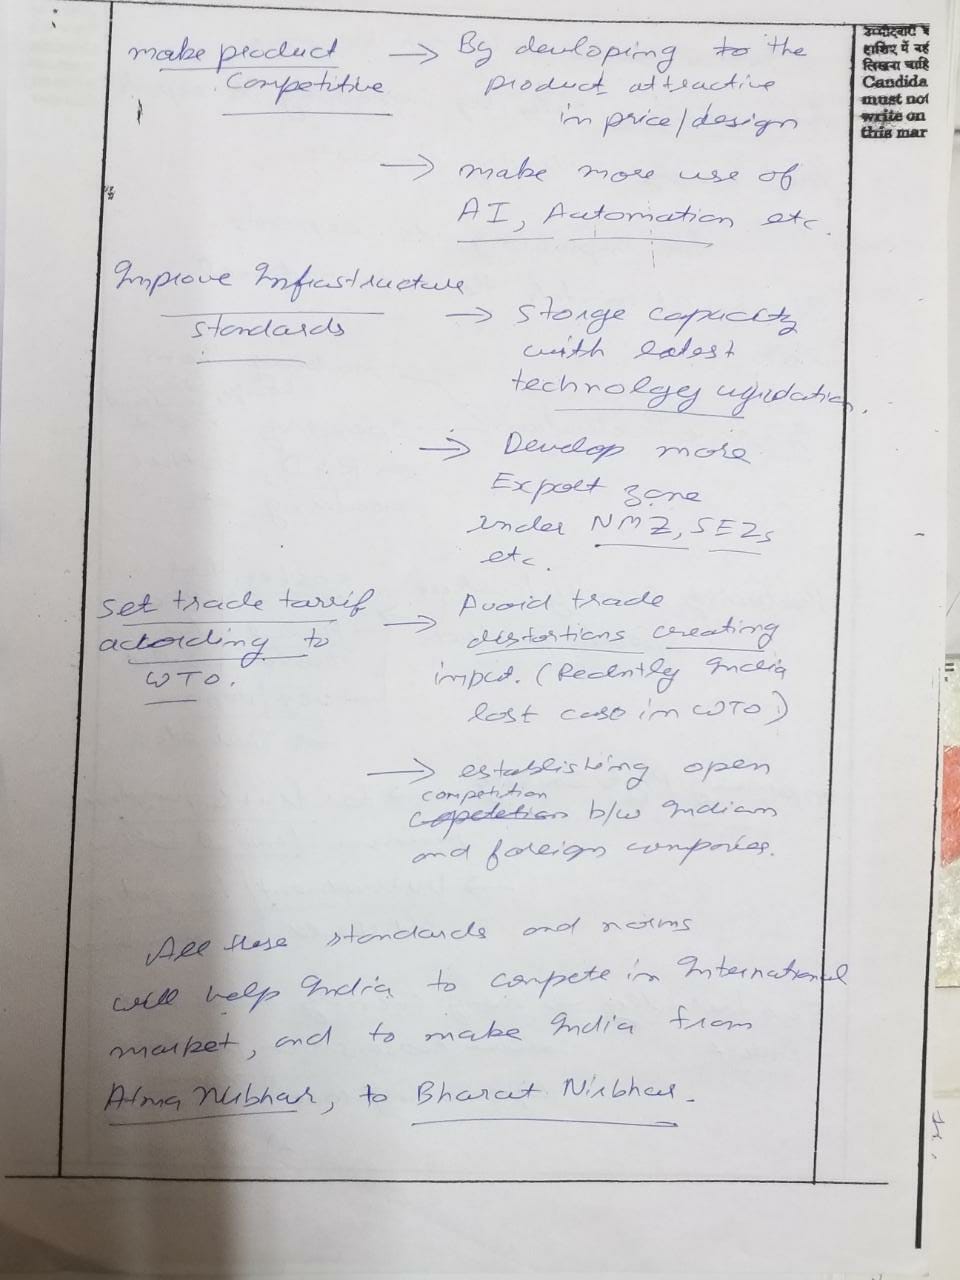 उम्मीदवारों
हाशिए में नह
लिखना चाहि
Candida
must not
write on
this mar
make product → By devloping to the
Competitive product attractive
in price/design
→ make more use of
AI, Automation etc.
Improve Infrastructure
standards → Storge capacity
with latest
technolgey
→ Develop more
Export zone
under NMZ, SEZs
etc.
Set trade tarrif → Avoid trade
according to distortions creating
WTO. input. (Recently India
lost case in WTO)
→ establishing open
competition
b/w Indian
and foreign companies.
All these standards and norms
will help India to compete in International
market, and to make India from
Atma Nirbhar, to Bharat Nirbhar.